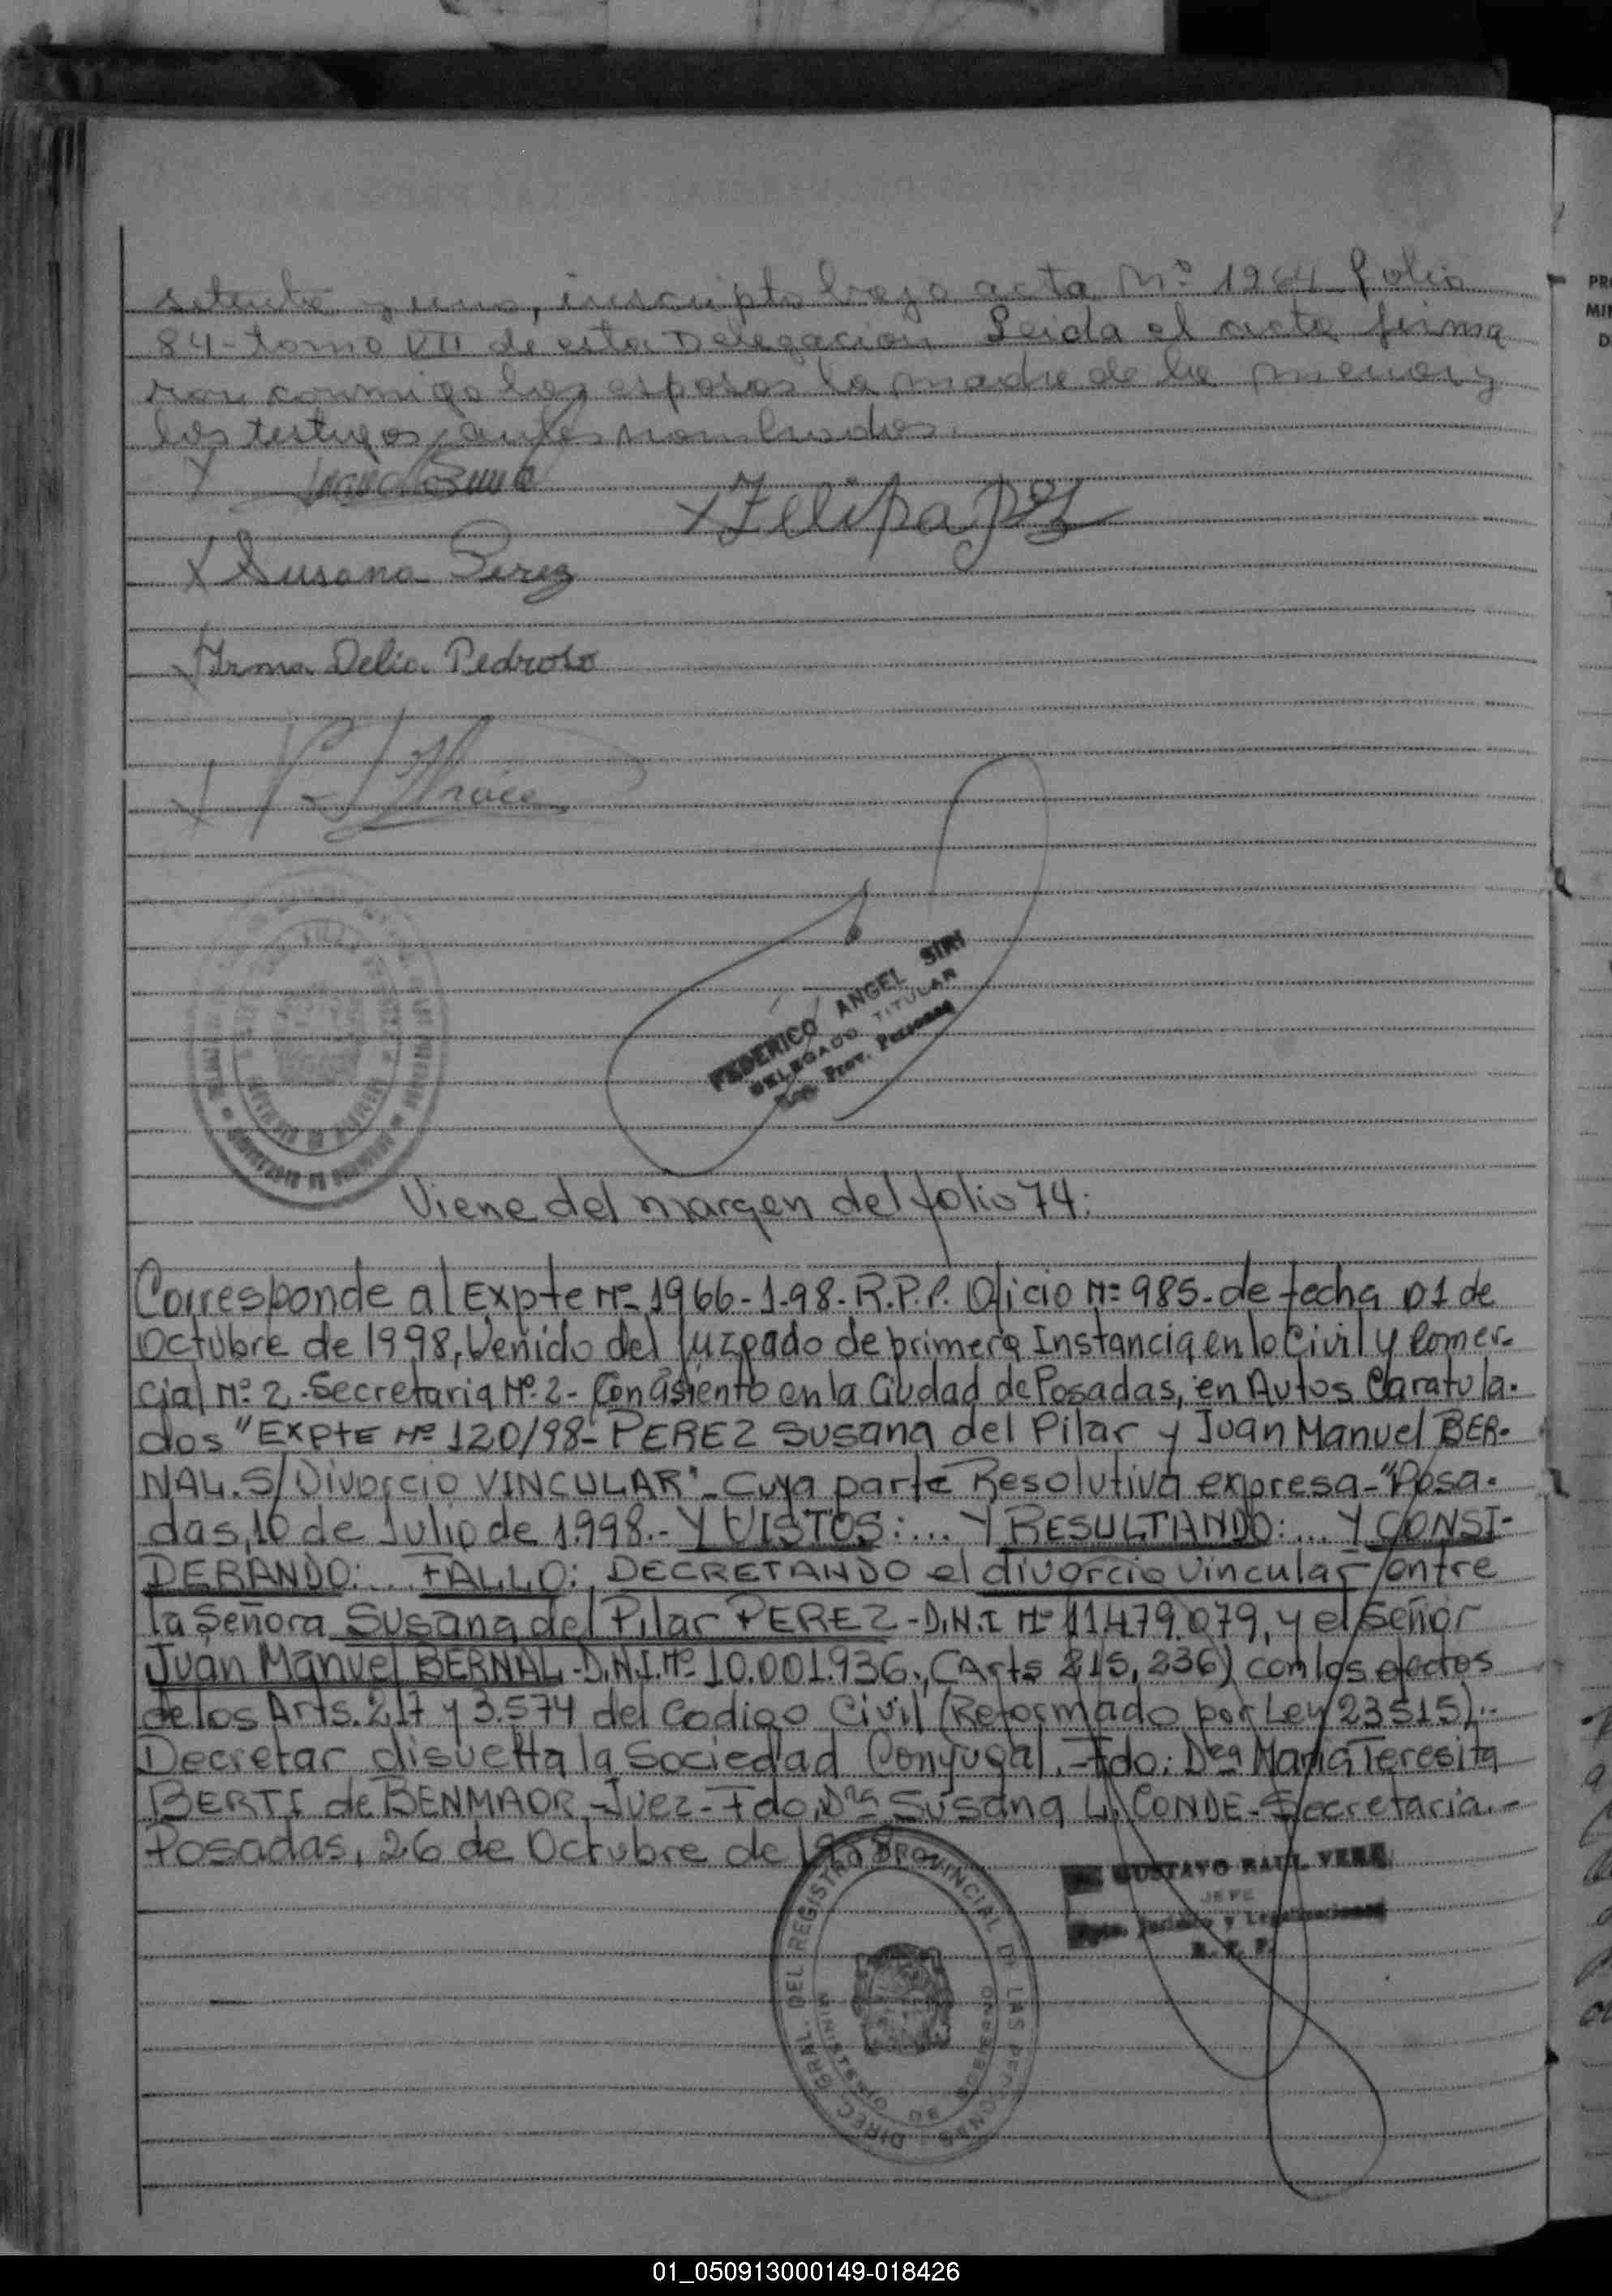 setenta y uno, inscripto bajo acta Nº 1964 folio
84-tomo VII de esta Delegacion Leida el acta firma
ron conmigo los esposos la madre de la menor y
los testigos, antes nombrados.
X
X Felipa
X Susana Perez
X Irma Delia Pedrozo
X
FEDERICO ANGEL SIRI
DELEGADO TITULAR
Reg. Prov. Personas
Viene del margen del folio 74:
Corresponde al Expte Nº 1966-1-98-R.P.P. Oficio Nº 985-de fecha 01 de
Octubre de 1998, Venido del Juzgado de primera Instancia en lo Civil y Comer-
cial Nº 2-Secretaria Nº 2- Con asiento en la Ciudad de Posadas, en Autos Caratula-
dos "Expte Nº 120/98- PEREZ Susana del Pilar y Juan Manuel BER-
NAL. S/Divorcio VINCULAR"- Cuya parte Resolutiva expresa-"Posa-
das, 10 de Julio de 1.998.- Y VISTOS:... Y RESULTANDO:... Y CONSI-
DERANDO:... FALLO: DECRETANDO el divorcio vincular entre
la Señora Susana del Pilar PEREZ -D.N.I Nº 11.479.079, y el Señor
Juan Manuel BERNAL-D.N.I. Nº 10.001.936., (Arts 215, 236) con los efectos
de los Arts. 217 y 3.574 del Codigo Civil (Reformado por Ley 23515).-
Decretar disuelta la Sociedad Conyugal.-Fdo: Dra Maria Teresita
BERTI de BENMAOR-Juez-Fdo. Dra Susana L. CONDE-Secretaria.-
Posadas, 26 de Octubre de
GUSTAVO RAUL VERA
JEFE
Dpto. Jurídico y Legalizaciones
R. P. P.
DIREC. GRAL. DEL REGISTRO PROVINCIAL DE LAS PERSONAS
MINISTERIO DE GOBIERNO
01_050913000149-018426